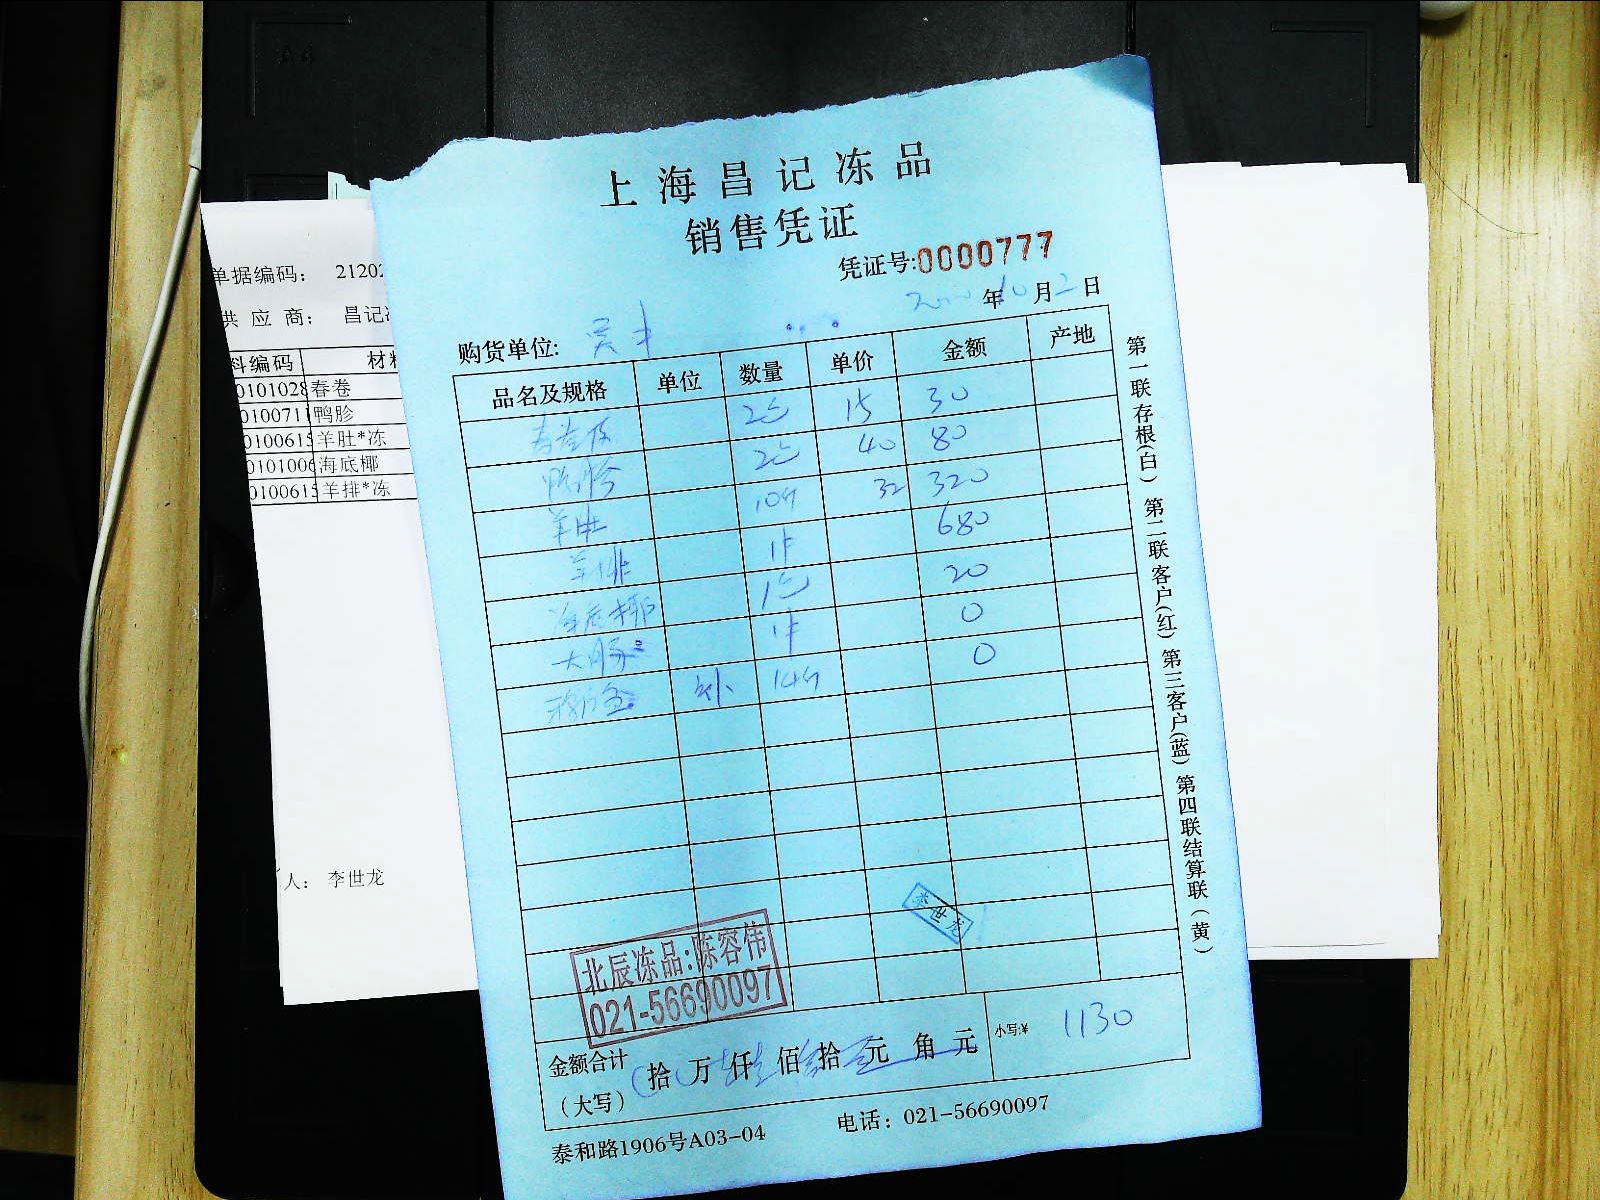 上海昌记冻品
销售凭证
凭证号:0000777
年10月2日
购货单位:
品名及规格 单位 数量 单价 金额 产地
春卷皮 2包 15 30
鸭胗 2包 40 80
羊肚 10斤 32 320
羊排 1件 680
海底椰 1包 20
大肠 1件 0
补 14斤 0
北辰冻品:陈容伟
021-56690097
李世龙
金额合计
(大写)
拾 万 仟 佰 拾 元 角 元
小写:¥ 1130
泰和路1906号A03-04 电话：021-56690097
第一联存根(白) 第二联客户(红) 第三客户(蓝) 第四联结算联(黄)
单据编码： 21202
供 应 商： 昌记
料编码 材
0101028 春卷
010071 鸭胗
010061 羊肚*冻
010100 海底椰
010061 羊排*冻
人： 李世龙